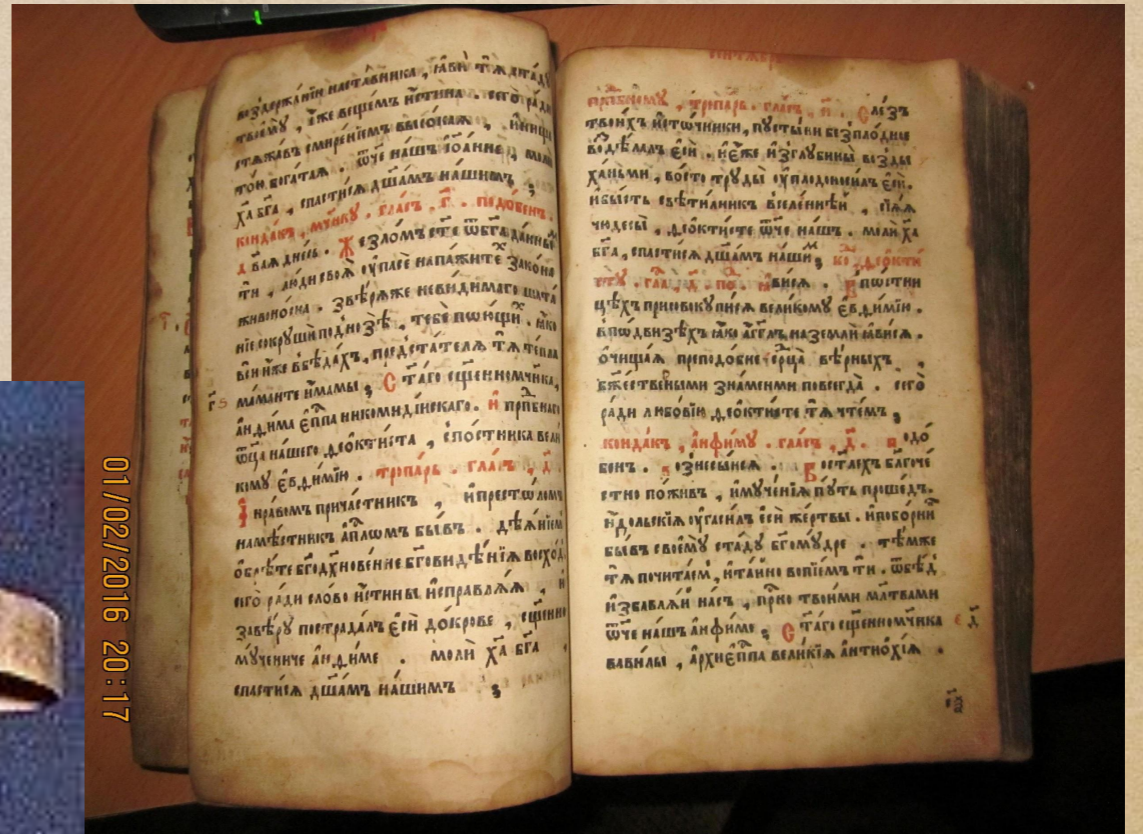 воздержанїи наставника , ꙗви тѧ стадꙋ
твоемꙋ , ꙗже вещемъ истина . сего ради
стѧжавъ смиренїемъ высокаѧ , инище
тою богатаѧ . ѿче нашъ іоанне , моли
ха бга , спастисѧ дшамъ нашимъ ;
кондакъ , мчнкꙋ . гласъ . г҃ . подобенъ .
дваѧ днесь . Жезломъ
ти , люди своѧ ꙋпасе напажите закона
живоносна . звѣрѧже невидимаго шата
нїе сокрꙋши под нозѣ , тебе поющи . ꙗко
вси иже вбѣдахъ , предстателѧ тѧ тепла
маманте имамы ; Стаго сщенномчнка ,
анѳима еппа никомидїискаго . и прпбнаго
ѿца нашего ѳеоктиста , спостника вели
комꙋ еѵѳимїю . тропарь . гласъ , д҃ .
И нравомъ причастникъ , и престоломъ
намѣстникъ апломъ бывъ . дѣѧнїемъ
обрѣте бгодхновенне вговидѣнїѧ восход
сего ради слово истинны исправлѧѧ , и
завѣрꙋ пострадалъ еси докрове , сщенно
мꙋчениче анѳиме . моли ха бга ,
спастисѧ дшамъ нашимъ ;
сентѧбрь
прпбномꙋ , тропарь . гласъ , и҃ . Слезъ
твоихъ источники , пꙋстыни безплодные
воздѣлалъ еси . и еже изглꙋбины возды
ханьми , восто трꙋды ꙋплодоносилъ еси .
ибысть свѣтилникъ вселеннѣи , сїѧѧ
чюдесы , ѳеоктисте ѿче нашъ . моли ха
бга , спастисѧ дшамъ наши ; ко ѳеокти
стꙋ . гла , д҃ . по . ꙗвисѧ . Впости
цѣхъ приовокꙋписѧ великомꙋ еѵѳимїю .
вподвизѣхъ ꙗко агглъ наземли ꙗвисѧ .
очищаѧ преподобне срца вѣрныхъ .
бжественными знаменми повсегда . сего
ради любовїю ѳеоктисте тѧ чтемъ ;
кондакъ , анѳимꙋ . гласъ , д҃ . подо
бенъ . вознесыисѧ . Востасхъ благоче
стно поживъ , имꙋченїѧ пꙋть прошедъ .
идольскїѧ ꙋгасилъ еси жертвы . ипоборни
бывъ своемꙋ стадꙋ бгомꙋдре . тѣмже
тѧ почитаем , итаино вопїемъ ти . ѿбѣд
избавлѧи насъ , прно твоими млтвами
ѿче нашъ анфиме ; Стаго сщенномчнка д҃
вавилы , архиеппа великїѧ антиохїѧ .
01/02/2016 20:17